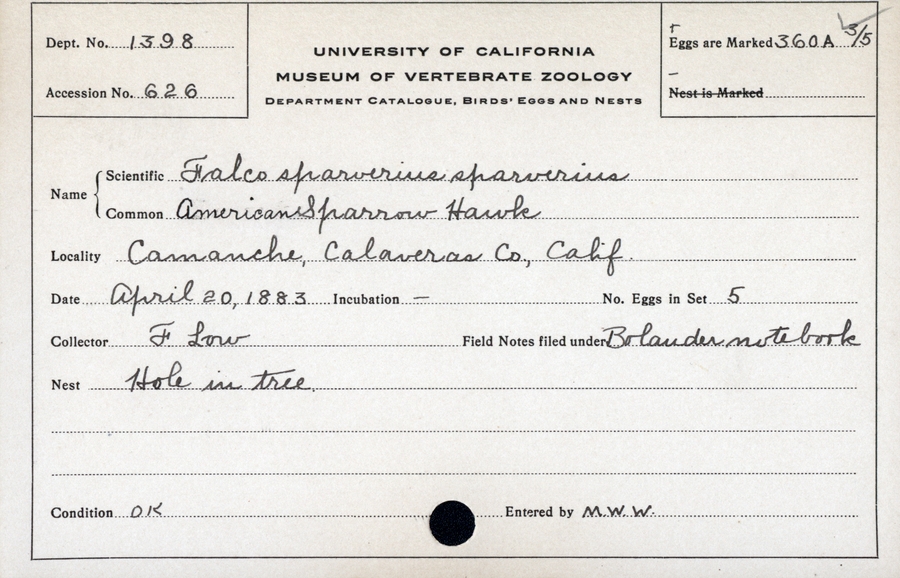 Dept. No. 1398
Accession No. 626
UNIVERSITY OF CALIFORNIA
MUSEUM OF VERTEBRATE ZOOLOGY
DEPARTMENT CATALOGUE, BIRDS' EGGS AND NESTS
Eggs are Marked 360A 3/5
Nest is Marked
Name
Scientific Falco sparverius sparverius
Common American Sparrow Hawk
Locality Camanche, Calaveras Co., Calif.
Date April 20, 1883 Incubation — No. Eggs in Set 5
Collector F Low Field Notes filed under Bolander notebook
Nest Hole in tree.
Condition OK Entered by M.W.W.